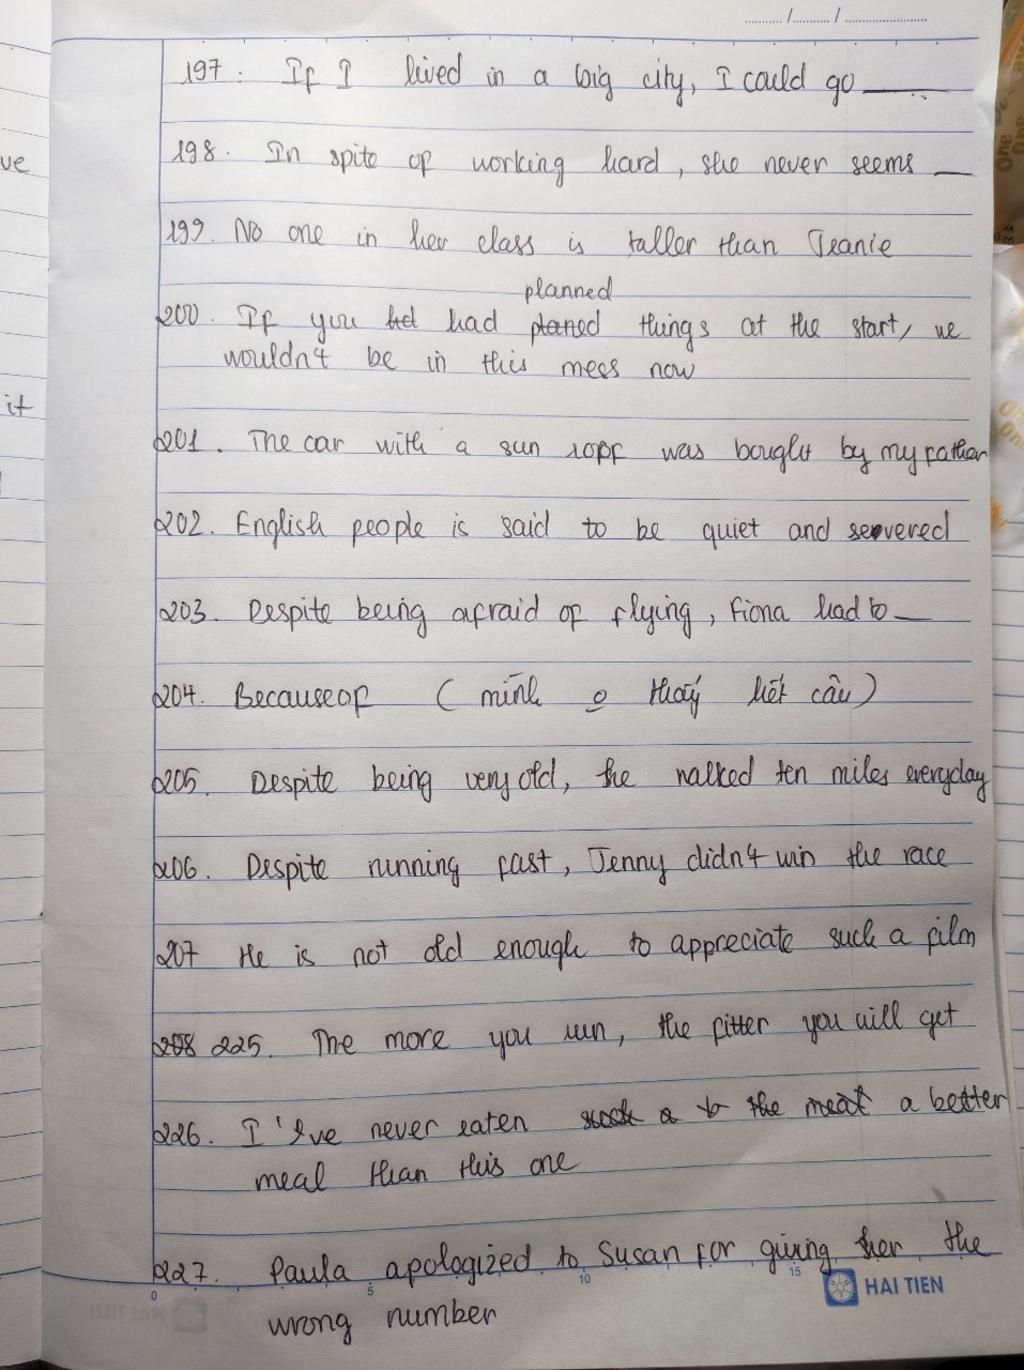 197. If I lived in a big city, I could go ___
198. In spite of working hard, she never seems ___
199. No one in her class is taller than Jeanie
planned
200. If you had had planed things at the start, we
wouldn't be in this mess now
201. The car with a sun roof was bought by my father
202. English people is said to be quiet and servered
203. Despite being afraid of flying, Fiona had to ___
204. Because of (mình o thấy hết câu)
205. Despite being very old, he walked ten miles everyday
206. Despite running fast, Jenny didn't win the race
207 He is not old enough to appreciate such a film
208 225. The more you run, the fitter you will get
226. I've never eaten a the meat a better
meal than this one
227. Paula apologized to Susan for giving her the
wrong number
0 5 10 15 HAI TIEN
ve
it